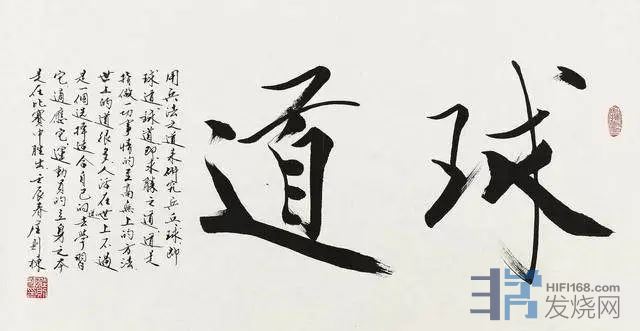 球道
用兵法之道来研究乒乓球即
球道球道即求勝之道道是
指做一切事情的至高無上的方法
世上的道很多人活在世上不過
是一個選擇適合自己的道去學習
它適應它運動員的立身之本
是在比賽中胜出壬辰春庄则栋
HIFI168.com
发烧网